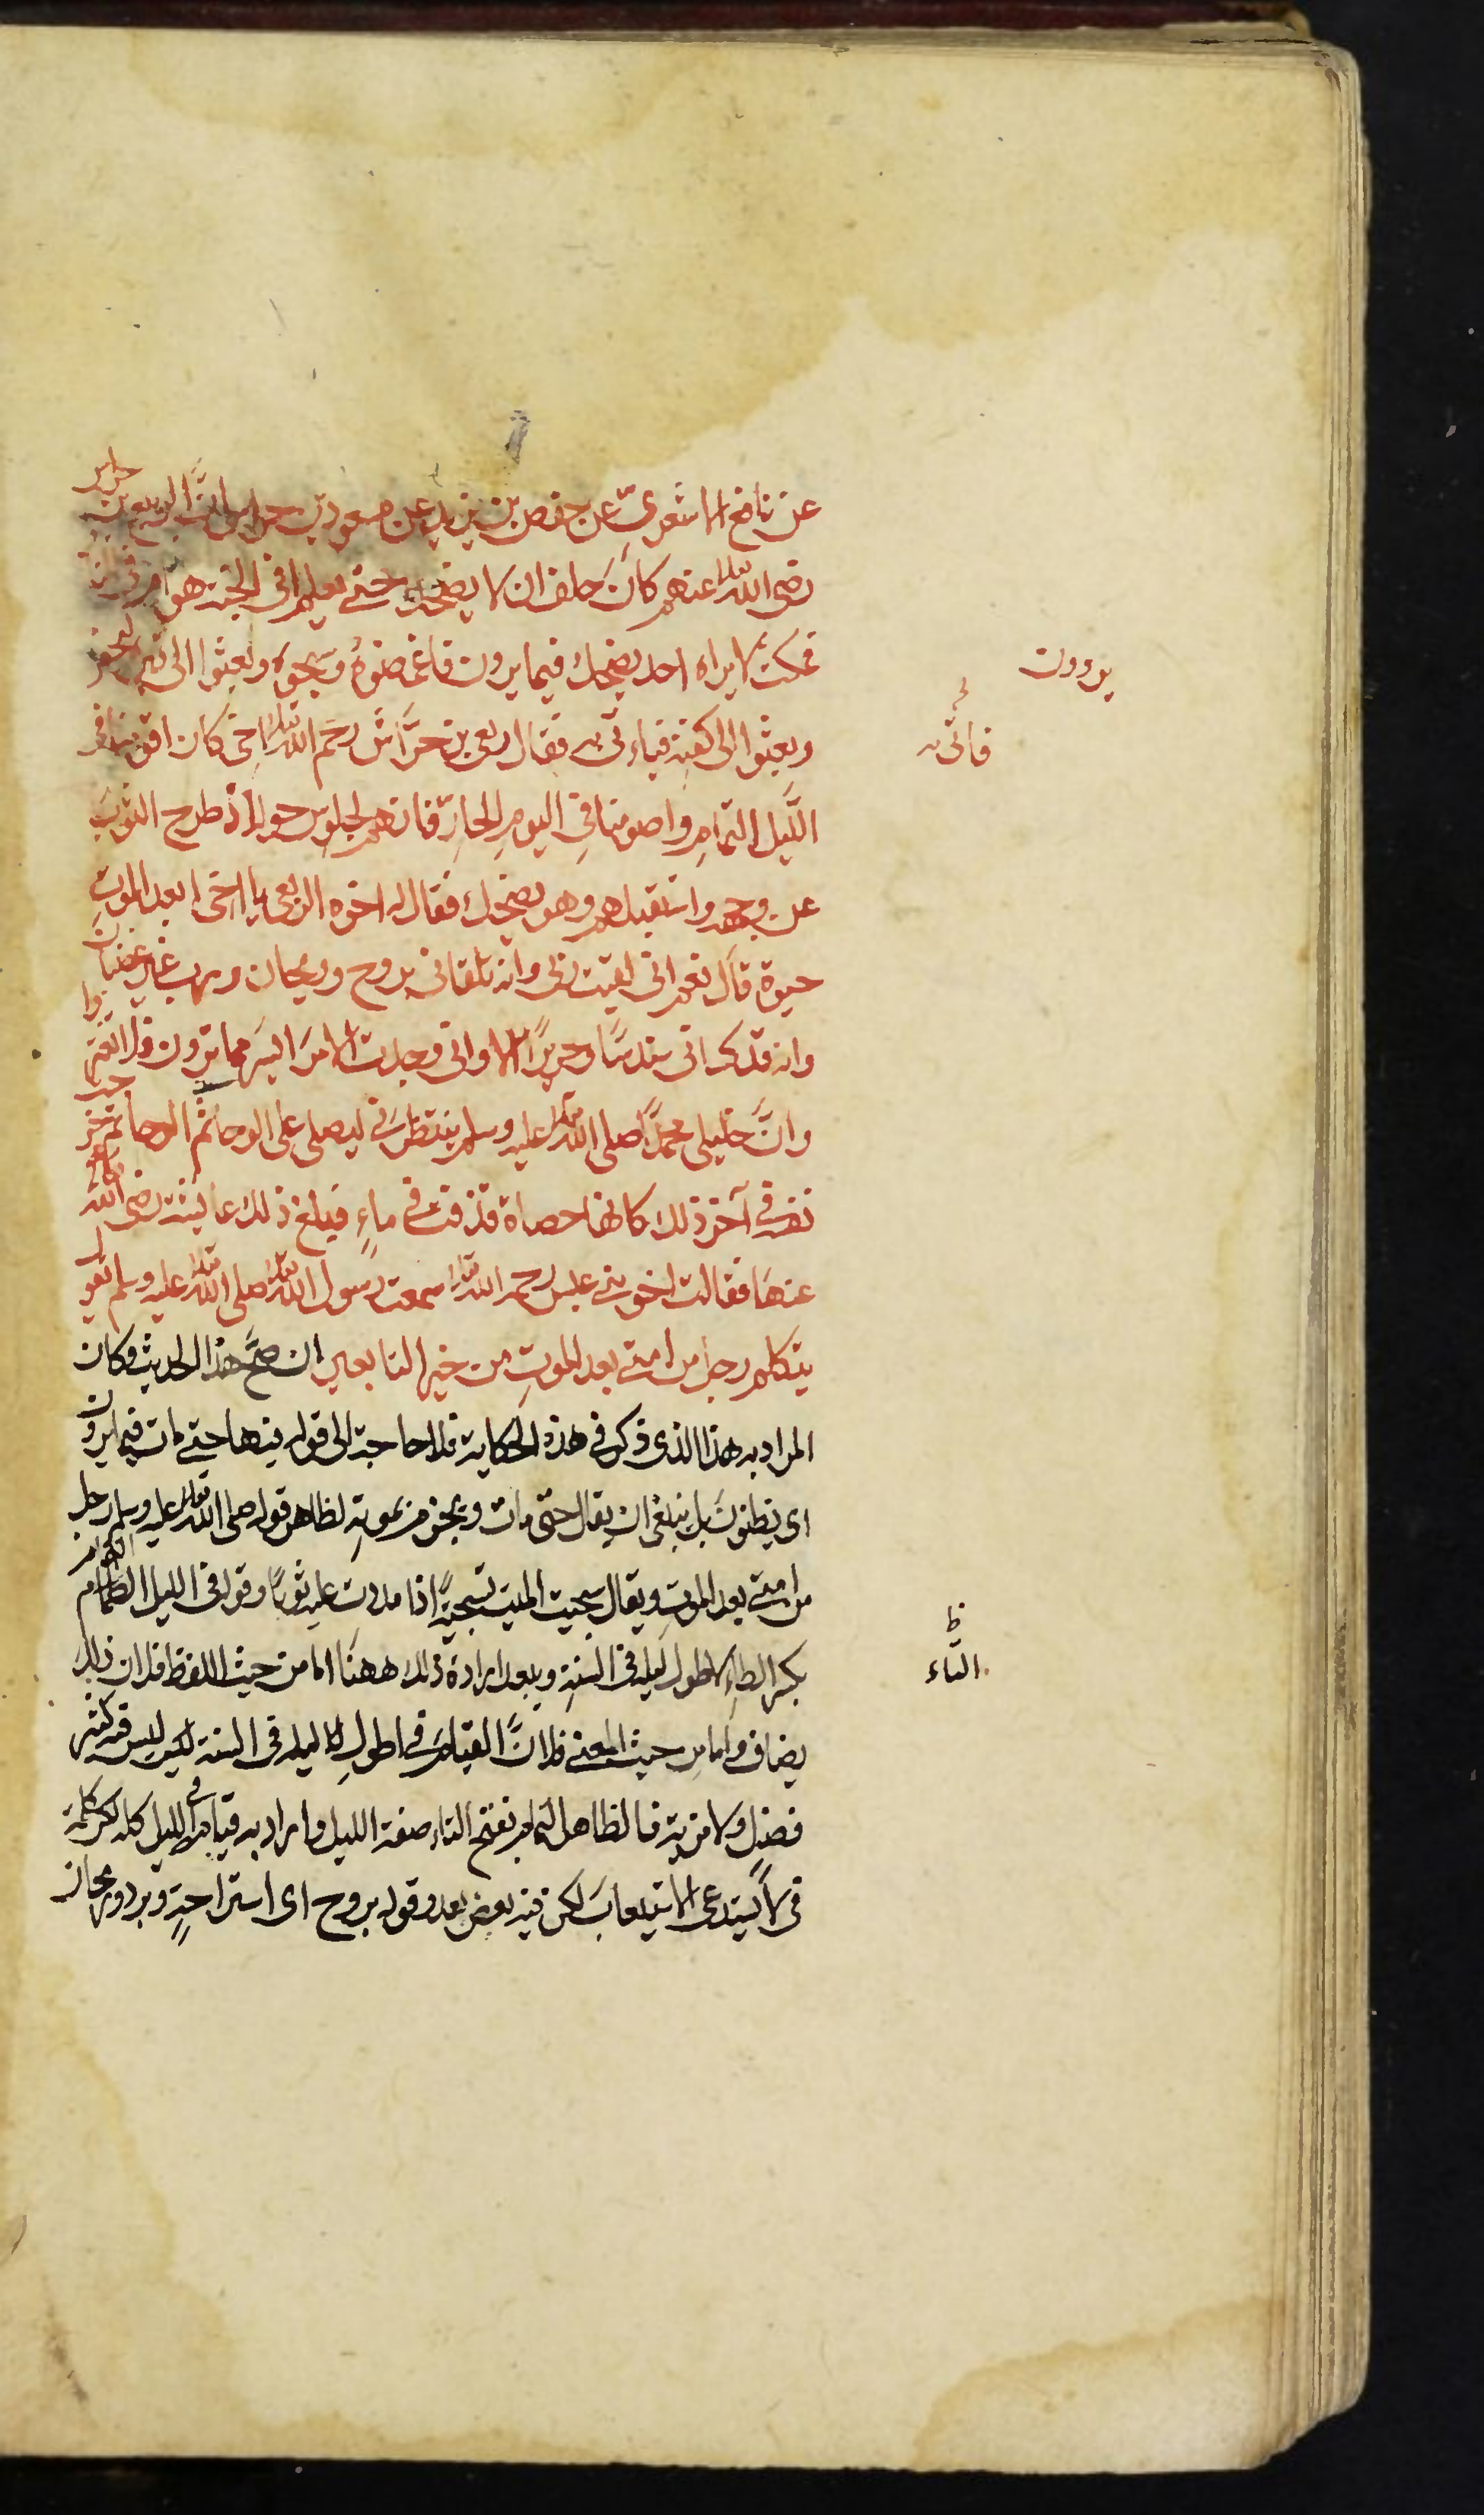 عن نافع الاشعريّ عن حفص بن يزيد عن مسعود بن حراش انّ الربيع بن حراش
رضى الله تعالى عنهم كان حلف ان لا يضحك حتى يعلم افى الجنة هو ام فى النار
فمكث لا يراه احد يضحك فيما يرون فاغمضوهُ وسجوه وبعثوا الى قبره ليحفر
وبعثوا الى كفنه فياءتى به فقال ربعى بن حرّاش رحم الله تعالى اخى كان اقومنا فى
اللّيل التمامِ واصومنا فى اليومِ الحارّ فانهم لجلوس حوله اذ طرح الثوبَ
عن وجهه واستقبلهم وهو يضحك فقال له اخوه الربعى يا اخى ابعد الموتِ
حيوة قال نعم انى لقيت ربى وانه تلقانى بروح وريحان ورب غير غضبان
وانه قد كسانى سندسًا وحريرًا الا وانى وجدت الامرَ ايسرَ مما ترون فلا تغتروا
وانّ خليلى محمدًا صلى الله تعالى عليه وسلم ينتظرنى ليصلى على الوحا ثم الوحا ثم خرجت
نفسه فى آخر ذلك كانها حصاة قذفت فى ماءٍ فبلغ ذلك عايشة رضى الله تعالى
عنها فقالت اخو بنى عبس رحمه الله تعالى سمعت رسول الله تعالى صلى الله تعالى عليه وسلم يقول
يتكلم رجل من امتى بعد الموتِ من خير التابعين ان صحّ هذا الحديث وكان
المراد به هذا الذى ذكر فى هذه الحكاية فلا حاجة الى قوله فيها حتى مات فيما يرون
اى يظنون بل ينبغى ان يقال حتى مات ويجزم بموته لظاهر قوله صلى الله تعالى عليه وسلم رجل
من امتى بعد الموتِ ويقال سجيت الميت تسجيةً اذا مددت عليه ثوبًا وقوله فى الليل الطمام
بكسر الطاءِ لاطول ليلة فى السنةِ ويبعد ارادة ذلك ههنا اما من حيث اللفظ فلان ذلك
يضاف واما من حيث المعنى فلانّ القيام فى اطولِ ليلة فى السنة ليس فيه كثير
فضل ولا مزية فالظاهر التمام بفتح التاء صفة الليل والمراد به قيام الليل كله لكن كلمة
فى لا يستدعى الاستيعابَ لكن فيه بعض بعد وقوله بروح اى استراحةٍ وبرد وريحان
يرددن
فاتى به
ظ
التاء